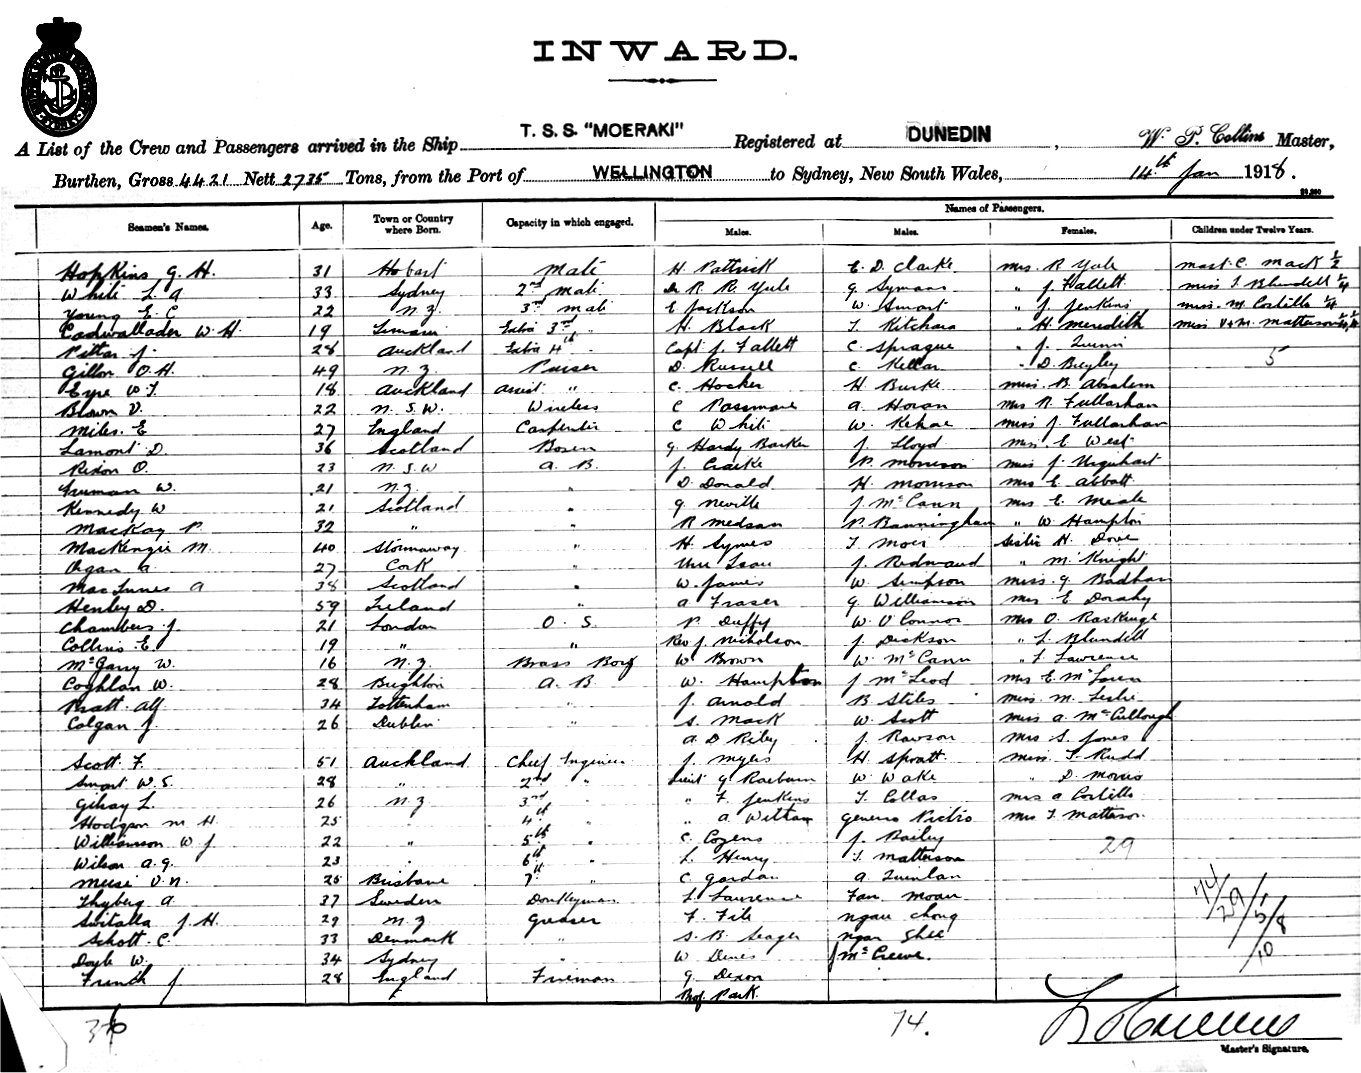 INWARD.
A List of the Crew and Passengers arrived in the Ship T. S. S. "MOERAKI" Registered at DUNEDIN, W. P. Collins Master,
Burthen, Gross 4421 Nett 2735 Tons, from the Port of WELLINGTON to Sydney, New South Wales, 14th Jan 1918.
Names of Passengers.
Seamen's Names. Age. Town or Country where Born. Capacity in which engaged. Males. Males. Females. Children under Twelve Years.
Hopkins G. H. 31 Hobart Mate H. Pattrick E. D. Clarke Mrs. R Yule Mast. C. Mack 1/2
White L. A 33 Sydney 2nd Mate Dr R. R. Yule G. Symons " J. Hallett Miss I Blundell 1/4
Young E. C 22 N. Z 3rd Mate E Jackson W. Smart " J Jenkins Miss M. Costille 1/4
Cadwallader W H. 19 Extra 3rd H. Black T. Kitchara " H. Meredith Miss V & M. Matterson
Pittar J. 28 Auckland Extra 4th Capt J. Fallett C. Sprague " J. Quinn 5
Gillon O. H. 49 N. Z. Purser D. Russell C. Kellar " D. Begley
Eyre W J. 18 Auckland Assist " C. Hooker H. Burke Miss. B. Abraham
Blown V. 22 N. S. W. Wireless C Passmore A. Horan Mrs R. Fullarton
Miles. E 27 England Carpenter C White W. Kehoe Miss J. Fullarton
Lamont D. 36 Scotland Bosun G. Hardy Barker J. Lloyd Miss E West
Rixon O. 23 N. S. W A. B. J. Clarke P. Morrison Miss J. Urquhart
Truman W. 21 N. Z. " D. Donald H. Morrison Mrs E. Abbott
Kennedy W 21 Scotland " G. Neville J. McCann Mrs. E. Meale
Mackay P. 32 " " R Medson P. Banningham " W. Hampton
MacKenzie M. 40 Stornaway " H. Symes T Moir Sister H. Dove
Organ A. 27 Cork " J. Redmond " M. Knight
MacInnes A 38 Scotland " W. James W. Simpson Miss. G Badham
Henley D. 59 Ireland " A Fraser G. Williamson Mrs E Dorahy
Chambers J. 21 London O. S. P. Duffy W. O'Connor Mrs O.
Collins E. 19 " " Rev J. Nicholson J. Dickson " L. Blundell
McGarry W. 16 N. Z. Brass Boy W Brown W. McCann " F Lawrence
Coghlan W. 28 Brighton A. B W. Hampton J McLeod Mrs E. McLaren
Pratt Alf 34 Tottenham " J. Arnold B Stiles Miss. M. Leslie
Colgan J 26 Dublin " S. Mack W. Scott Miss A. McCullough
A. D Riley J. Rawson Mrs S. Jones
Scott F. 51 Auckland Chief Engineer J. Myers H. Spratt Miss. L. Rudd
Smart W. S. 28 " 2nd " Lieut G Raeburn W. Wake " D. Morris
Gilray L. 26 N. Z 3rd " " F. Jenkins T. Collas Mrs A Costille
Hodgson M H. 25 " 4th " " A. Witham Generis Pietro Mrs T Matterson.
Williamson W J. 22 " 5th " C. Cozens J. Bailey 29
Wilson A. G. 23 " 6th " L. Henry T. Matterson
25 Brisbane 7th " C Gordon A. Quinlan
Thyberg A 37 Sweden Donkeyman L Lawrence Fan Moan
Switalla J. H. 29 N. Z Greaser F. File Ngau Chong
Schott C. 33 Denmark " S. B. Seager Ngan Ghee
Doyle W. 34 Sydney " W Dines J McCreeve.
French J 28 England Fireman G. Dixon
Prof. Park.
74/29/5/8
10
36 74.
Master's Signature.